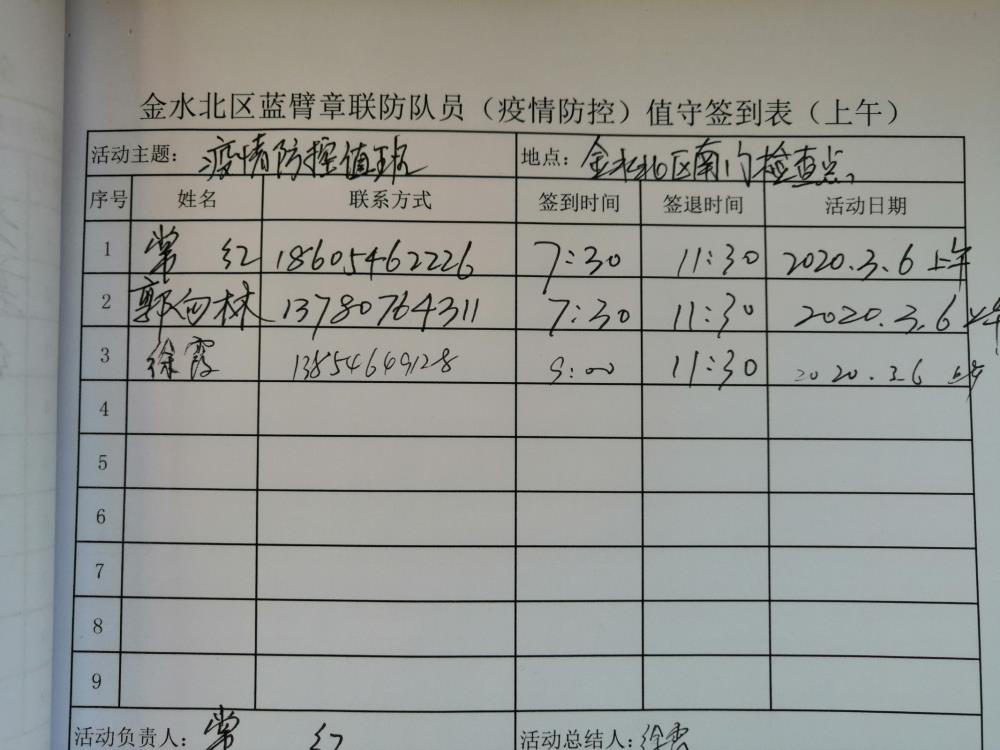 金水北区蓝臂章联防队员（疫情防控）值守签到表（上午）
活动主题：疫情防控值班 地点：金水北区南门检查点
序号 姓名 联系方式 签到时间 签退时间 活动日期
1 常红 18605462226 7:30 11:30 2020.3.6 上午
2 郭向林 13780764311 7:30 11:30 2020.3.6 上午
3 徐霞 13854649128 9:00 11:30 2020.3.6 上午
4
5
6
7
8
9
活动负责人：常红 活动总结人：徐霞